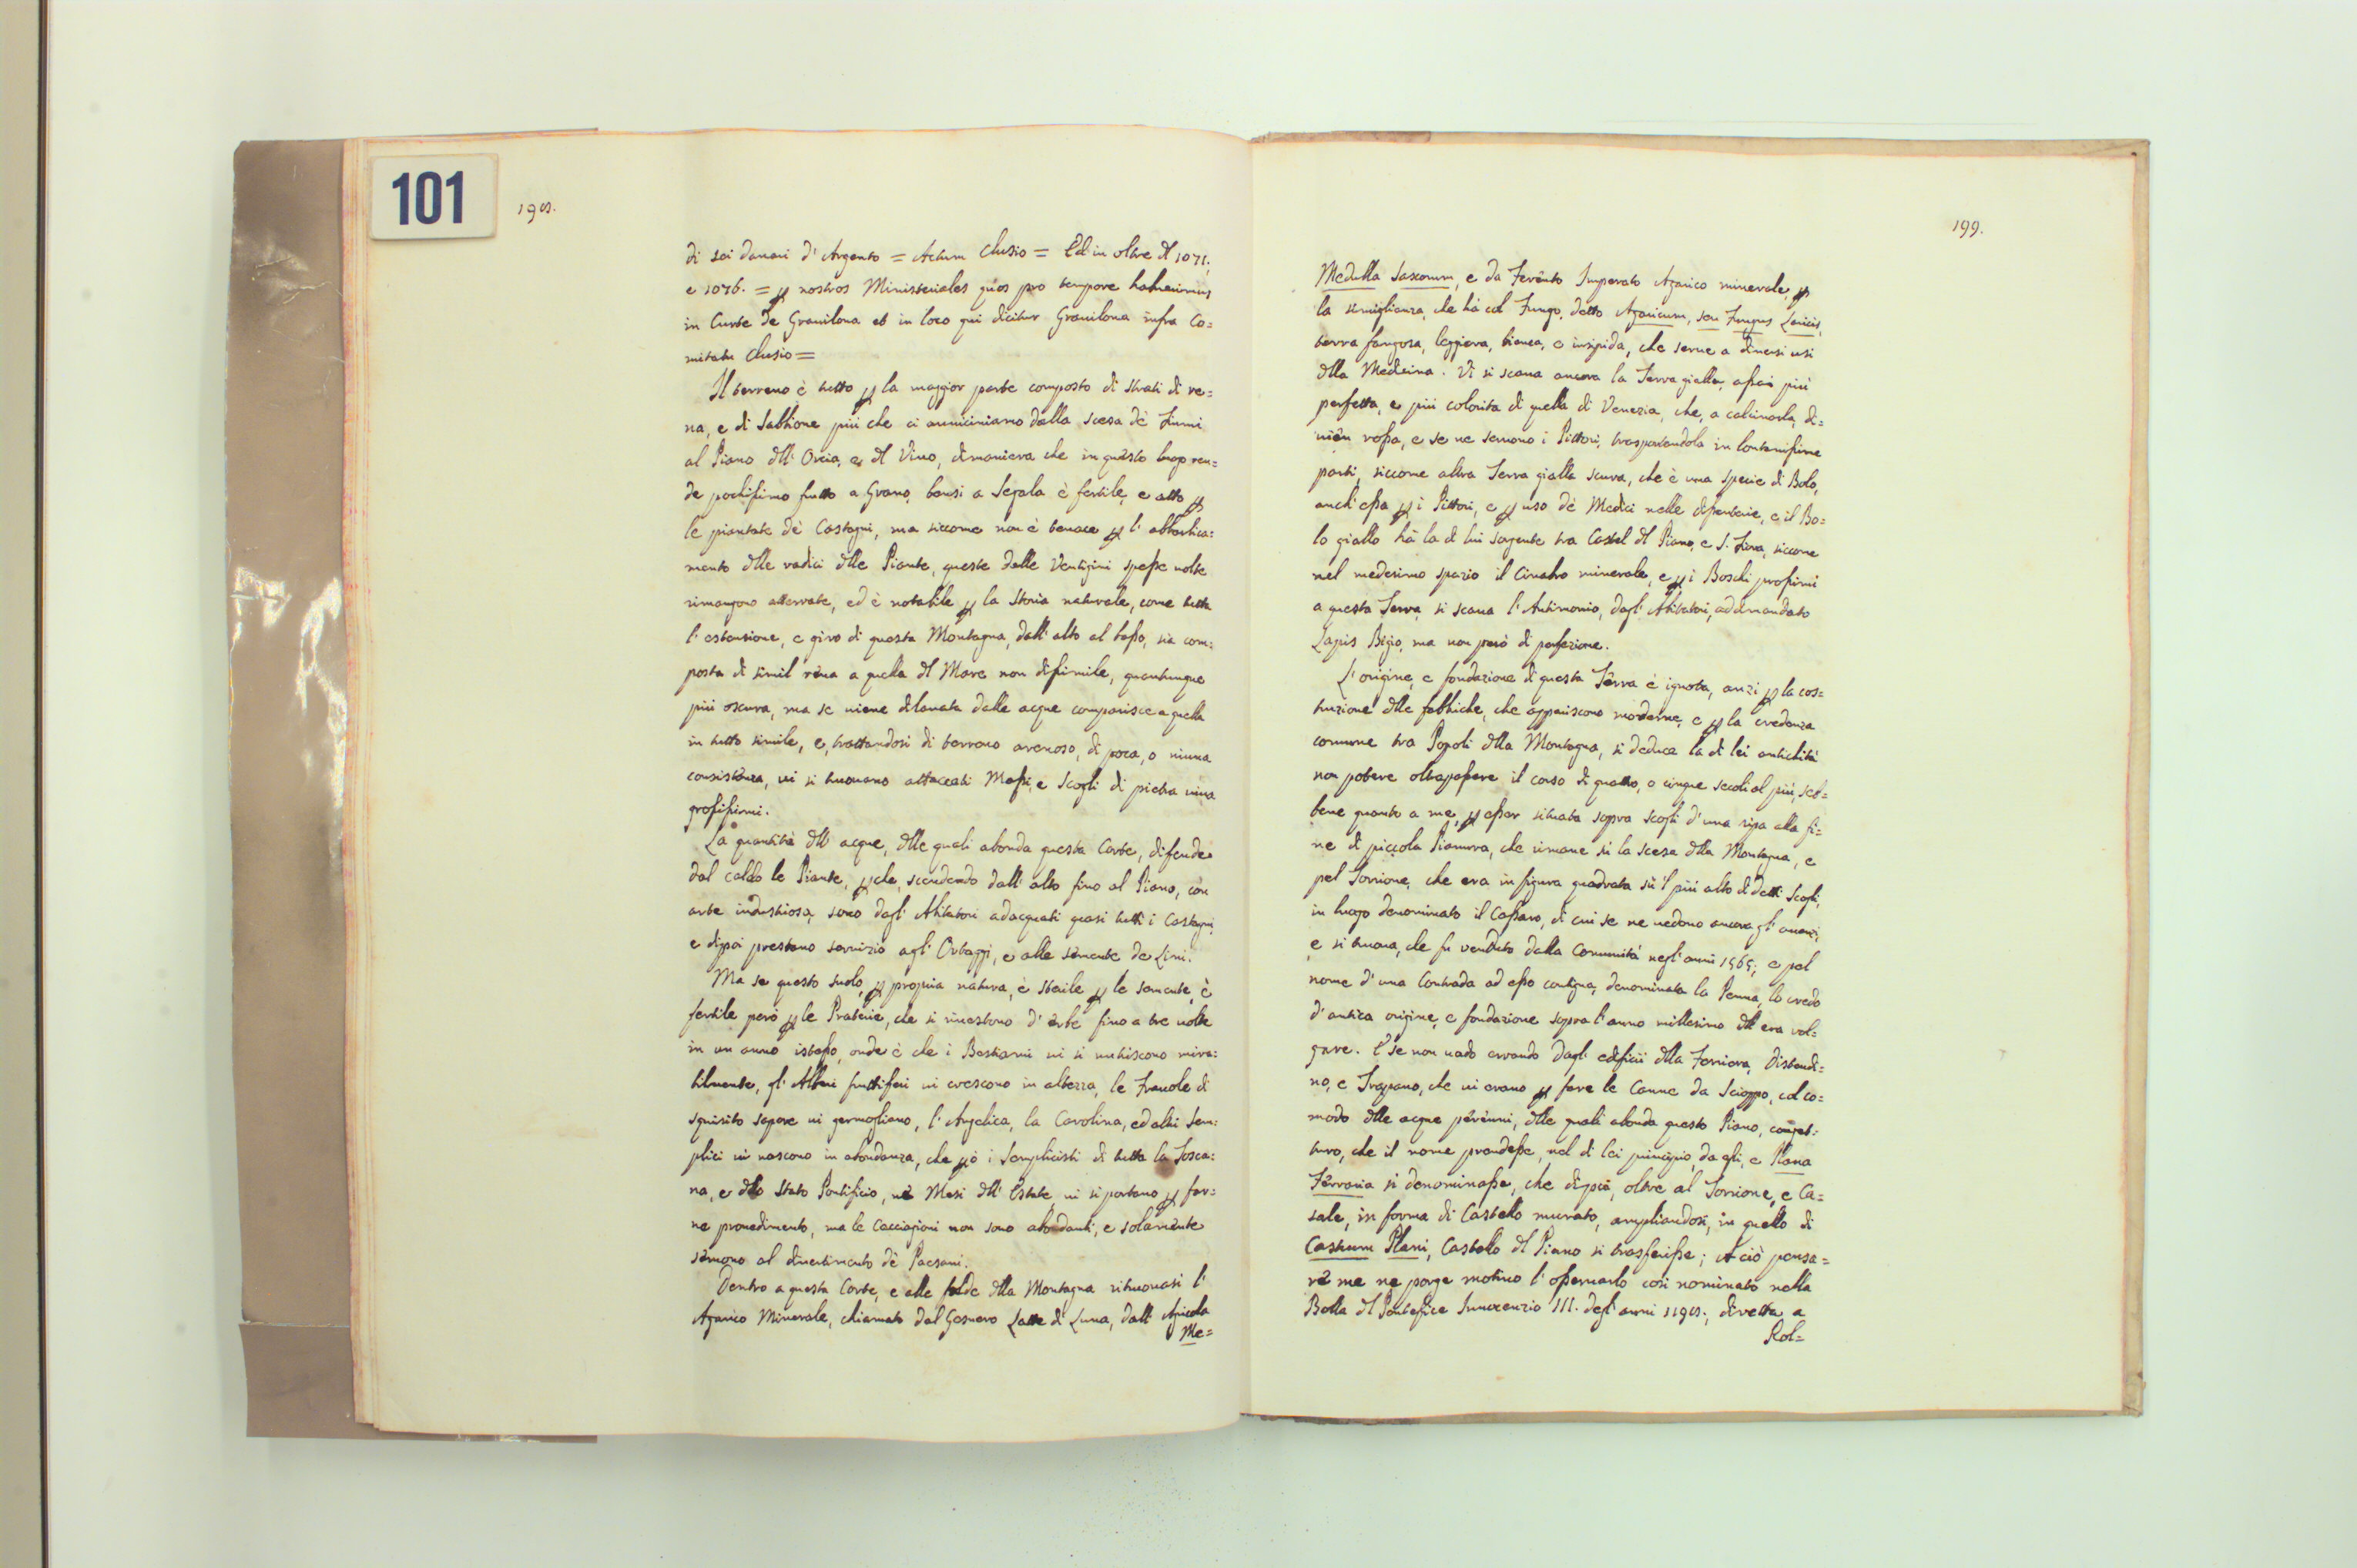 101
198.
di sei danari d'Argento = Actum Clusio = Ed in oltre dl 1071;
e 1076. = p nostros Ministeriales quos pro tempore habuerimus
in Curte de Gravilona et in loco qui dicitur Gravilona infra Co=
mitatu Clusio =
Il terreno è tutto p la maggior parte composto di strati di re=
na, e di Sabbione più che ci avviciniamo dalla scesa dè Fiumi
al Piano dll' Orcia, e dl Vivo, dimaniera che in questo luogo ren=
de pochissimo frutto a Grano, bensì a Segala è fertile, e atto p
le piantate dè Castagni, ma siccome non è tenace p l'abbarbica=
mento dlle radici dlle Piante, queste dalle Ventigini spesse volte
rimangono atterrate, ed è notabile p la Storia naturale, come tutta
l'estensione, e giro di questa Montagna, dall'alto al basso, sia com=
posta di simil rena a quella dl Mare non dissimile, quantunque
più oscura, ma se viene dilavata dalle acque comparisce a quella
in tutto simile, e, trattandosi di terreno arenoso, di poca, o niuna
consistenza, vi si truovano attaccati Massi, e Scogli di pietra viva
grossissimi.
La quantità dll' acque, dlle quali abonda questa Corte, difende
dal caldo le Piante, pche, scendendo dall'alto fino al Piano, con
arte industriosa, sono dagl' Abitatori adacquati quasi tutti i Castagni,
e dipoi prestano servizio agl' Ortaggi, e alle semente de Lini.
Ma se questo suolo, p propria natura, è sterile p le semente, è
fertile però p le Praterie, che si rivestono d'erbe fino a tre volte
in un anno istesso, onde è che i Bestiami vi si nutriscono mira=
bilmente, gl' Alberi fruttiferi vi crescono in altezza, le Fravole di
squisito sapore vi germogliano, l'Angelica, la Carolina, ed altri Sem=
plici vi nascono in abondanza, che pò i Semplicisti di tutta la Tosca=
na, e dllo Stato Pontificio, nè Mesi dll' Estate vi si portano p far=
ne provedimento, ma le Cacciagioni non sono abondanti, e solamente
servono al divertimento dè Paesani.
Dentro a questa Corte, e alle falde dlla Montagna ritruovasi l'
Agarico Minerale, chiamato dal Gesnero Latte di Luna, dall' Agricola
Me=
199.
Medulla Saxorum, e da Ferrante Imperato Agarico minerale, p
la simiglianza, che hà col Fungo, detto Agaricum, seu Fungus Laricis,
terra fangosa, leggiera, bianca, e insipida, che serve a diversi usi
dlla Medicina. Vi si scava ancora la Terra gialla, assai più
perfetta, e più colorita di quella di Venezia, che, a calcinarla, di=
vien rossa, e se ne servono i Pittori, trasportandola in lontanissime
parti, siccome altra Terra gialla scura, che è una specie di Bolo,
anch'essa p i Pittori, e p uso dè Medici nelle disenterie, e il Bo=
lo giallo hà la di lui sorgente tra Castel dl Piano, e S. Fiora, siccome
nel medesimo spazio il Cinabro minerale, e p i Boschi prossimi
a questa Terra, si scava l'Antimonio, dagl' Abitatori, addimandato
Lapis Bigio, ma non però di perfezione.
L'origine, e fondazione di questa Terra è ignota, anzi p la cos=
truzione dlle fabbriche, che appariscono moderne, e p la credenza
comune tra Popoli dlla Montagna, si deduce la di lei antichità
non potere oltrapassare il corso di quattro, o cinque secoli al più, seb=
bene quanto a me, p esser situata sopra scogli d'una ripa alla fi=
ne di piccola Pianura, che rimane sù la scesa dlla Montagna, e
pel Torrione, che era in figura quadrata sù 'l più alto di detti Scogli,
in luogo denominato il Cassaro, di cui se ne vedono ancora gl' avanzi,
e si truova, che fu venduto dalla Comunità negl'anni 1565; e pel
nome d'una Contrada ad esso contigua, denominata la Penna, lo credo
d'antica origine, e fondazione sopra l'anno millesimo dll' era vol=
gare. E se non vado errando dagl' edificii dlla Ferriera, Distendi=
no, e Trapano, che vi erano p fare le Canne da Scioppo, col co=
modo dlle acque perenni, dlle quali abonda questo Piano,
che il nome prendesse, nel di lei principio, da essi, e Plana
Ferraria si denominasse, che dipoi, oltre al Torrione, e Ca=
sale, in forma di Castello murato, ampliandosi, in quello di
Castrum Plani, Castello dl Piano si trasferisse; A ciò pensa=
re me ne porge motivo l'osservarlo così nominato nella
Bolla dl Pontefice Innocenzio III. degl'anni 1198., diretta a
Rol=